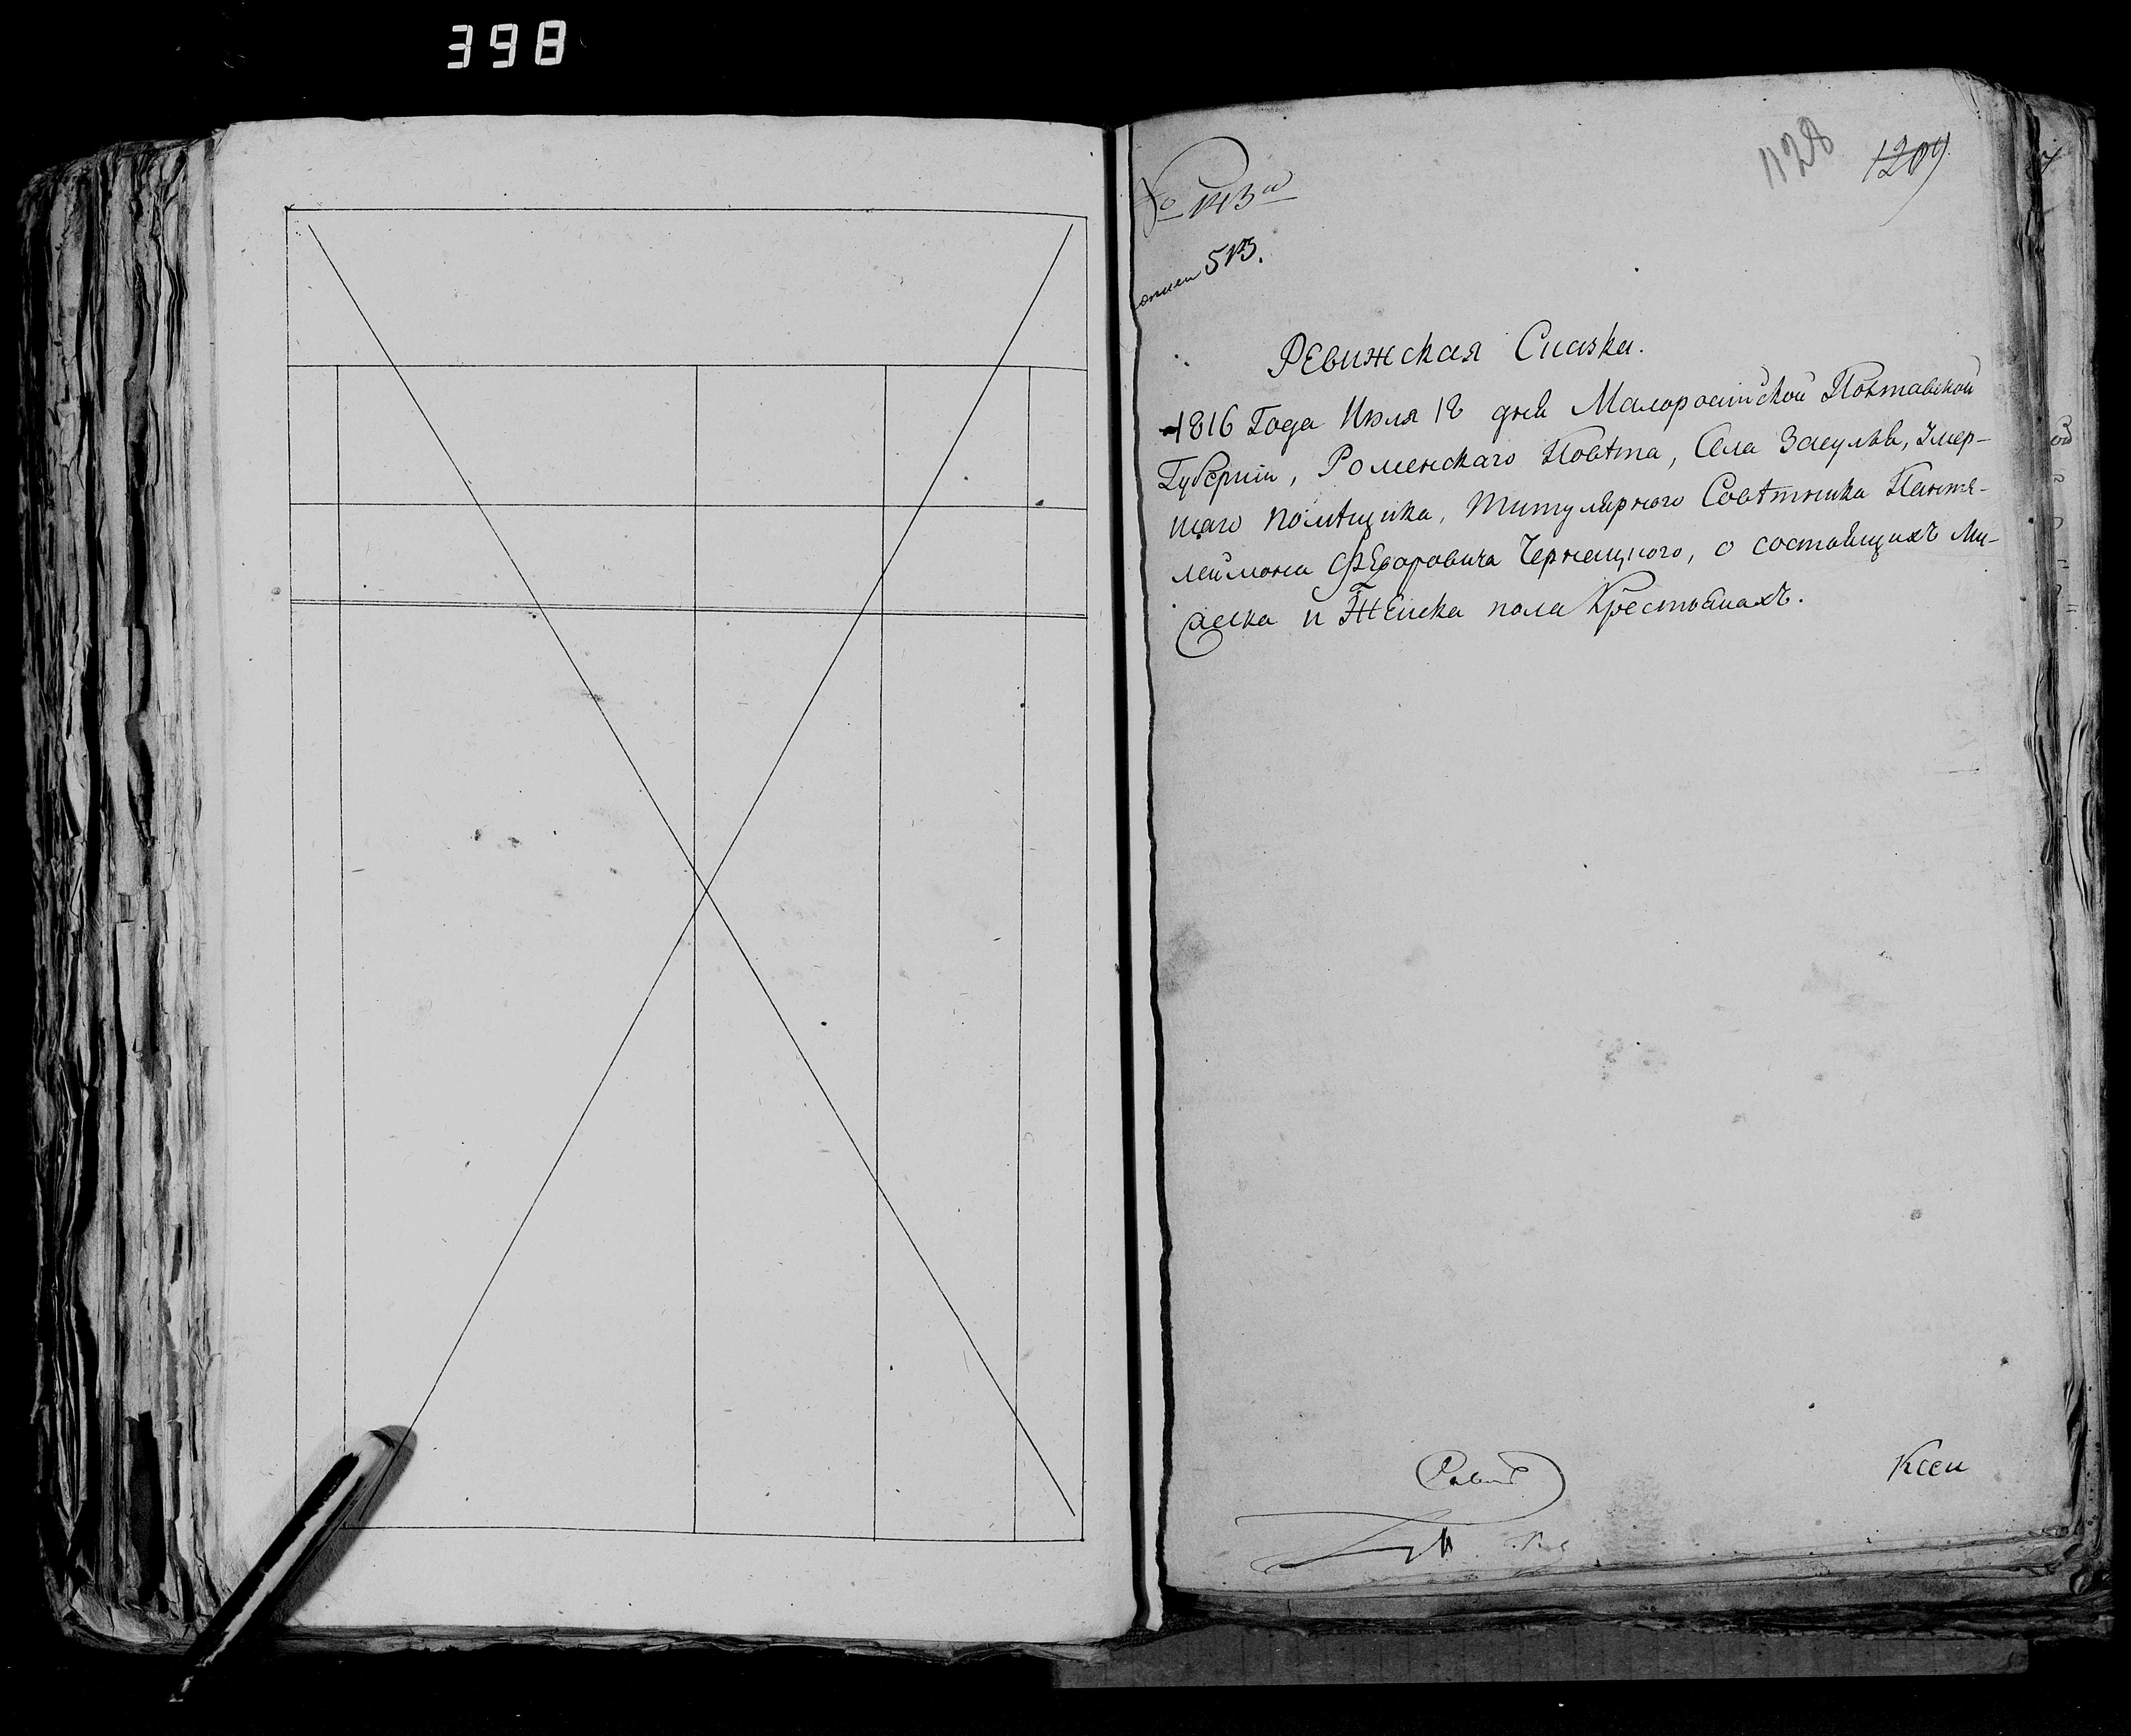 398
1128
1209
№ 143й
описи 513.
Ревижская Сказка.
1816 Года Июля 18 дня Малоросiйской Полтавской
Губернiи, Роменскаго Повѣта, Села Засулья, Умер-
шаго Помѣщика, Титулярного Совѣтника Пантя-
леймона Федоровича Чернецкого, о состоящихъ Му-
жеска и Женска пола Крестьянахъ.
Ксен